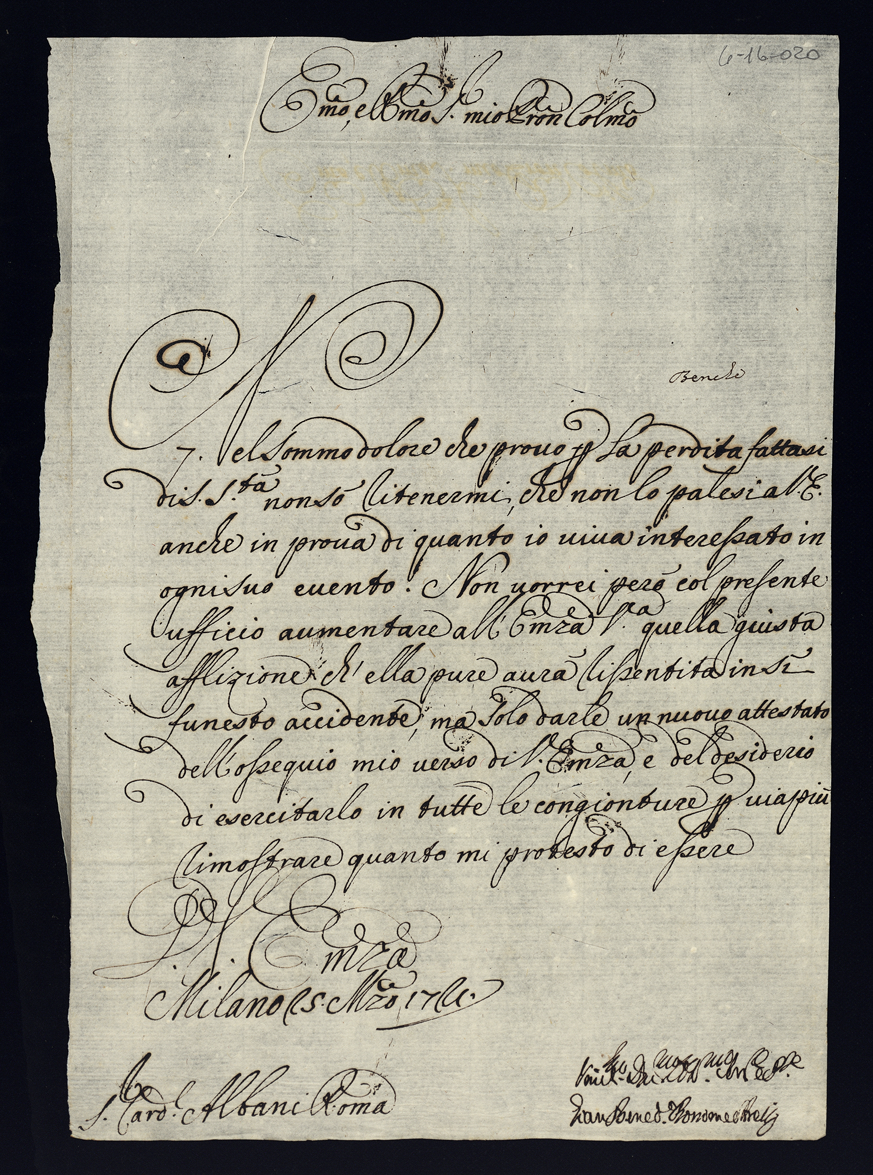 6-16-020
Em̃o, e Rm̃o S.r mio Pron̄ Colm̃o
Benche
7. Nel sommo dolore che prouo p la perdita fattasi
di S. S.tà non sò ritenermi, che non lo palesi a V. E.
anche in proua di quanto io uiua interessato in
ogni suo euento. Non uorrei però col presente
ufficio aumentare all' Em̃za V.a quella giusta
afflizione ch' ella pure aurà risentita in sì
funesto accidente, ma solo darle un nuouo attestato
dell' ossequio mio uerso di V. Em̃za, e del desiderio
di esercitarlo in tutte le congionture p uiapiù
rimostrare quanto mi protesto di essere
D. V. Em̃za
Milano Mzo
S. Card.l Albani Roma